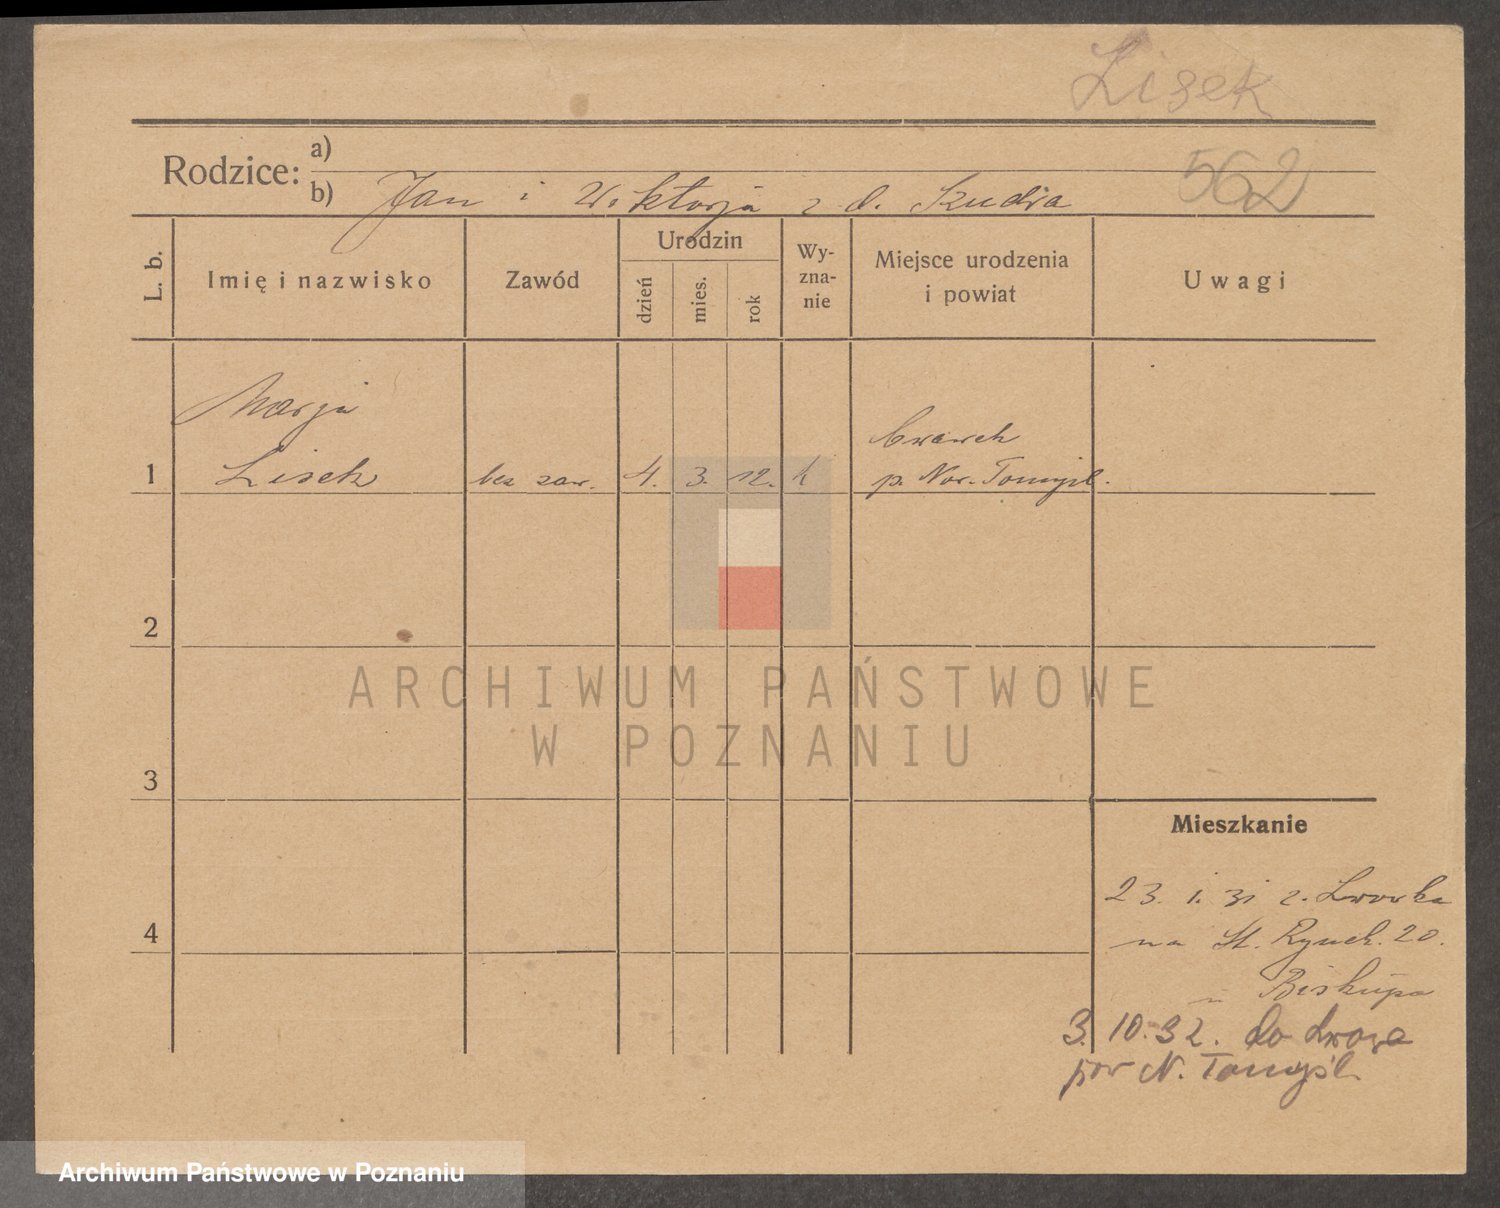 Lisek
562
Rodzice: a)
b) Jan i Wiktorja z d. Szudra
L. b.
Imię i nazwisko
Zawód
Urodzin
dzień
mies.
rok
Wy-
zna-
nie
Miejsce urodzenia
i powiat
Uwagi
Marja
1 Lisek bez zaw. 4. 3. 12. k
p. Now. Tomyśl.
2
3
4
Mieszkanie
23. 1. 31 z Lwówka
na St. Rynek. 20.
u Biskupa
3. 10. 32. do
pow N. Tomyśl
ARCHIWUM PAŃSTWOWE
W POZNANIU
Archiwum Państwowe w Poznaniu